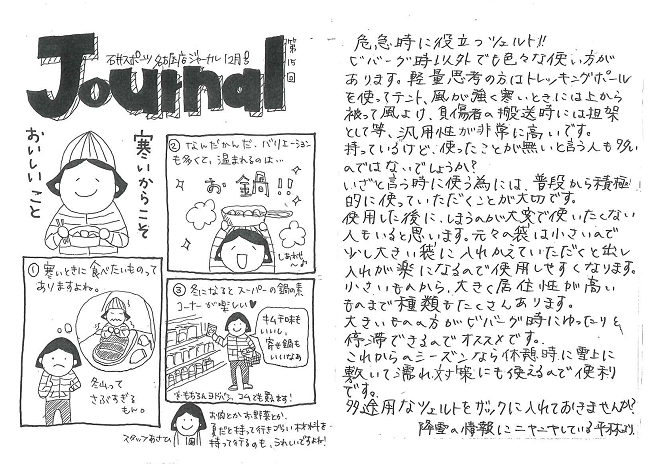 石井スポーツ名古屋店ジャーナル12月号
Journal
第15回
寒いからこそ
おいしいこと
① 寒いときに食べたいものって
ありますよね。
冬山って
さぶすぎる
もん。
② なんだかんだ、バリエーション
も多くて、温まれるのは…
お・鍋!!
しあわせ〜♪
③ 冬になるとスーパーの鍋の素
コーナーが楽しい♥
キムチ味も
いいし、
寄せ鍋も
いいなぁ
もちろんヨドバシ.コムでも買えます!
お肉とかお野菜とか、
夏だと持って行きづらい材料を
持って行けるのも、うれしいですよね!
スタッフあさひ
危急時に役立つツェルト!!
ビバーグ時以外でも色々な使い方が
あります。軽量思考の方はトレッキングポール
を使ってテント、風が強く寒いときには上から
被って風よけ、負傷者の搬送時には担架
として等、汎用性が非常に高いです。
持っているけど、使ったことが無いと言う人も多い
のではないでしょうか?
いざと言う時に使う為には、普段から積極
的に使っていただくことが大切です。
使用した後に、しまうのが大変で使いたくない
人もいると思います。元々の袋は小さいので
少し大きい袋に入れかえていただくと出し
入れが楽になるので使用しやすくなります。
小さいものから、大きく居住性が高い
ものまで種類もたくさんあります。
大きいものの方がビバーグ時にゆったりと
停滞できるのでオススメです。
これからのシーズンなら休憩時に雪上に
敷いて濡れ対策にも使えるので便利
です。
多途用なツェルトをザックに入れておきませんか?
降雪の情報にニヤニヤしている平林より